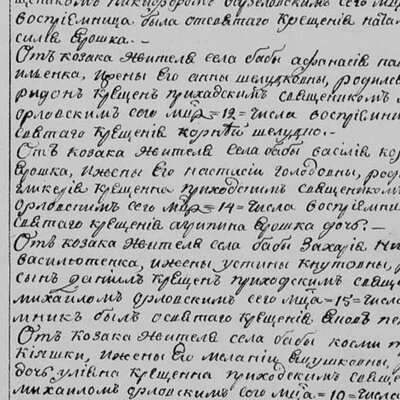 воспріемница была отсвятаго крещенія ната
силія Ерошка. —
Отъ козака жителя села бабы афанасія
ильенка, и жены его анны шелудковны, родилс
ридонъ крещен приходскимъ священикомъ
орловскимъ сего мца = 12 = числа воспріемни
святаго крещенія корнѣй шелудко. —
Отъ козака жителя села бабы василія ко
Ерошка, и жены его настасіи голодовны, ро
гликерія крещенна приходскимъ священикомъ
орловскимъ сего мца = 14 = числа воспріемни
святаго крещенія агрипина Ерошка дочь. —
Отъ козака жителя села бабы Захарія
василютенка, и жены устины кнутовны,
сынъ даніилъ крещен приходскимъ свяще
михаиломъ орловскимъ сего мца = 15 = числа
мникъ былъ освятаго крещенія
Отъ козака жителя села бабы косми
кіяшки, и жены его меланіи
дочь улияна крещенна приходскимъ священи
михаиломъ орловскимъ сего мца = 19 = числа